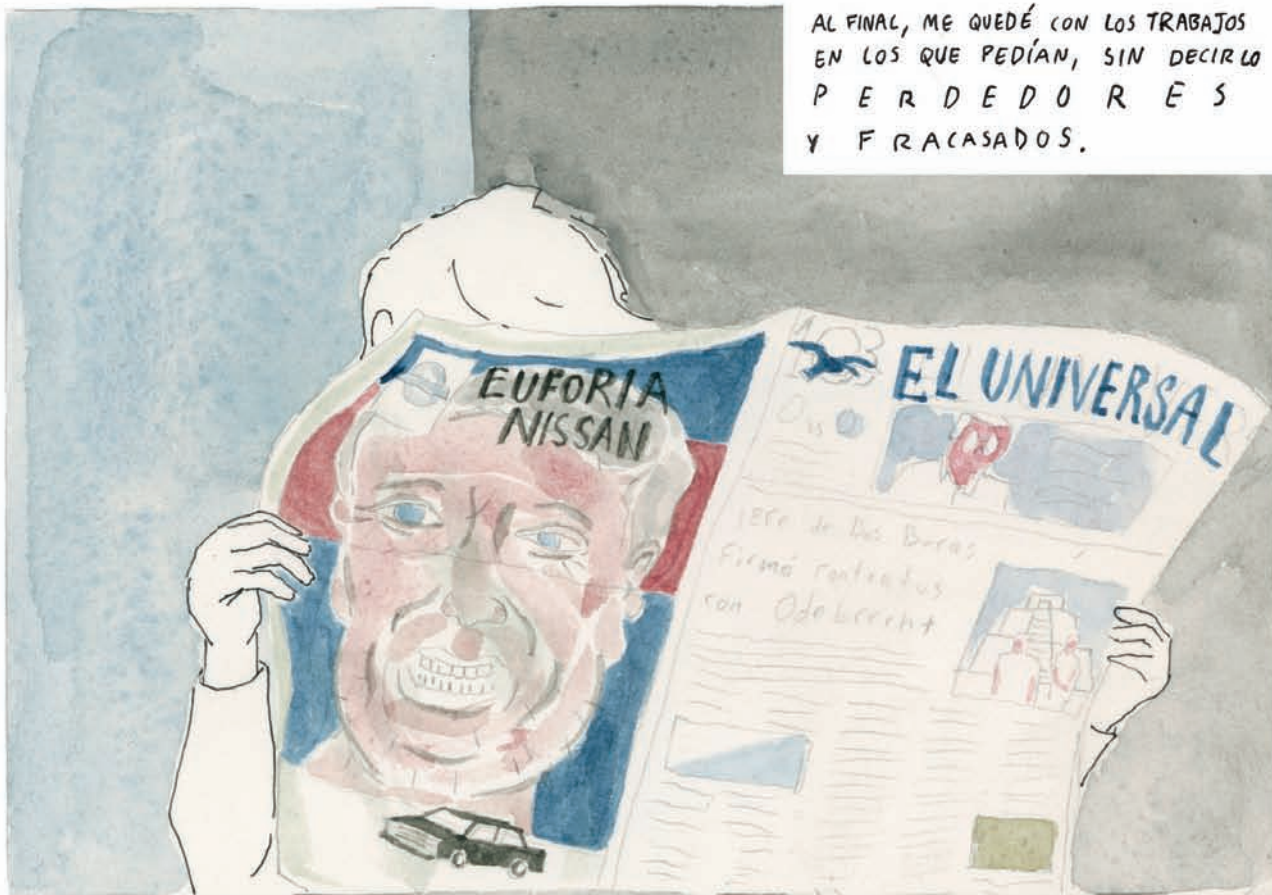 AL FINAL, ME QUEDÉ CON LOS TRABAJOS
EN LOS QUE PEDÍAN, SIN DECIRLO
PERDEDORES
Y FRACASADOS.
EUFORIA
NISSAN
EL UNIVERSAL
de Dos Bocas
firmó contratos
con Odebrecht